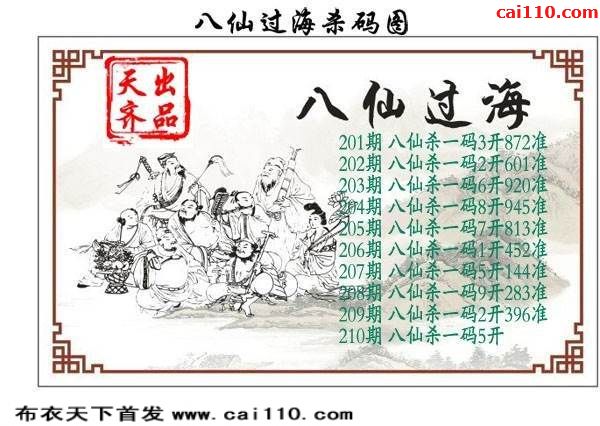 八仙过海杀码图
cai110.com
天出
齐品
八仙过海
201期 八仙杀一码3开872准
202期 八仙杀一码2开601准
203期 八仙杀一码6开920准
204期 八仙杀一码8开945准
205期 八仙杀一码7开813准
206期 八仙杀一码1开452准
207期 八仙杀一码5开144准
208期 八仙杀一码9开283准
209期 八仙杀一码2开396准
210期 八仙杀一码5开
布衣天下首发 www.cai110.com